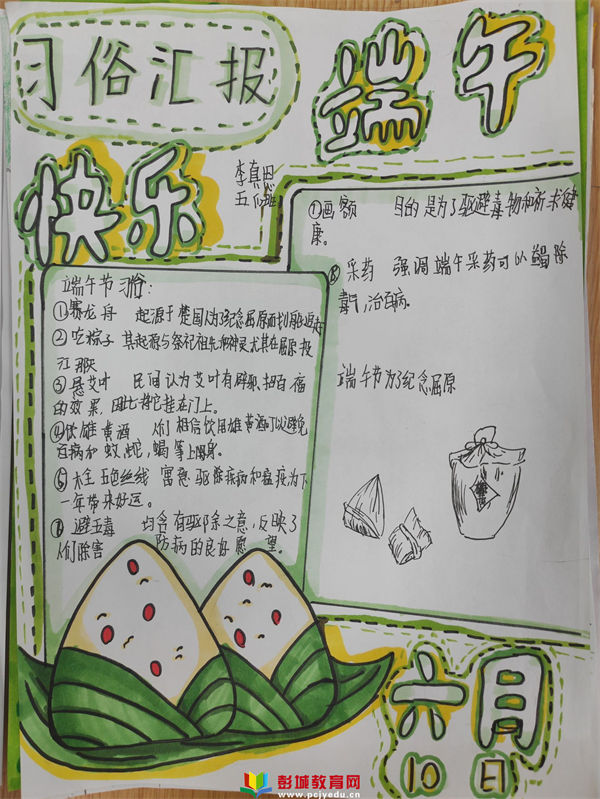 习俗汇报
端午
快乐
李真
五
端午节习俗:
①赛龙舟 起源于楚国人为了纪念屈原
②吃粽子 其起源与祭祀祖先和神灵尤其在屈原投
江那天
③悬艾叶 民间认为艾叶有辟邪、招百福
的效果,因此将它挂在门上。
④饮雄黄酒 人们相信饮用雄黄酒可以避免
百病和蚊,蛇,蝎等上身。
⑤栓五色丝线 寓意驱除疾病和瘟疫为下
一年带来好运。
避五毒 均含有驱除之意,反映了
人们除害 防病的良好愿望。
①画额 目的是为了驱避毒物和祈求健
康。
⑧采药 强调端午采药可以 除
毒气,治百病。
端午节为了纪念屈原
六月
10日
彭城教育网
www.pcjyedu.cn